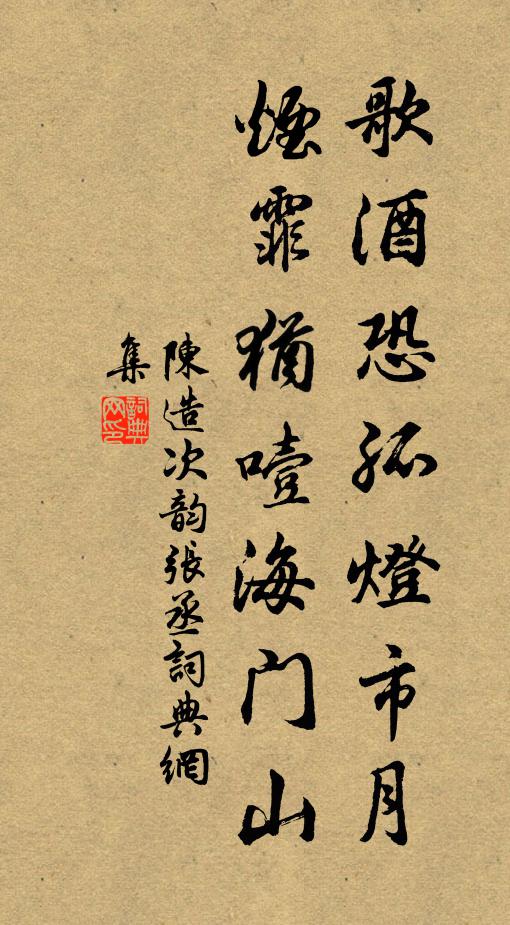 歌酒恐孤燈市月
煙霏猶噎海门山
陳造次韵張丞詞典網
集
詞典网印